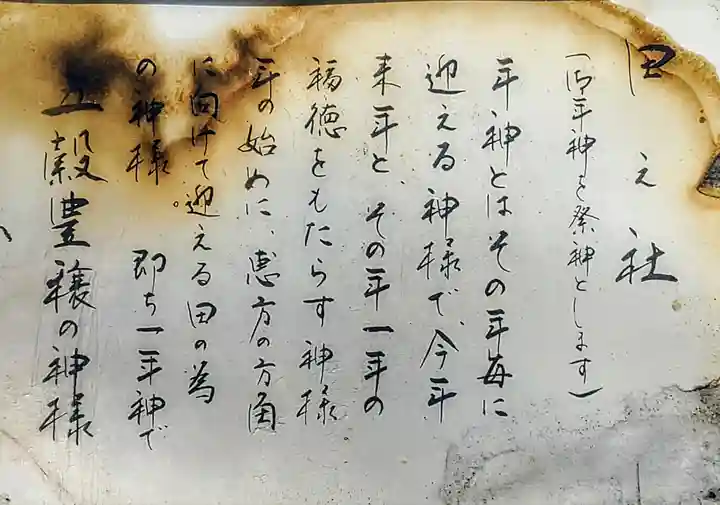 田え社
(御年神を祭神とします)
年神とはその年毎に
迎える神様で、今年
来年と、その年一年の
福徳をもたらす神様。
年の始めに、恵方の方角
に向けて迎える田の為
の神様。 即ち一年神で
五穀豊穣の神様